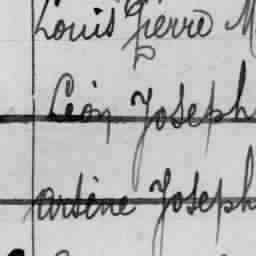 Louis Pierre M
Léon Joseph
arsène Joseph